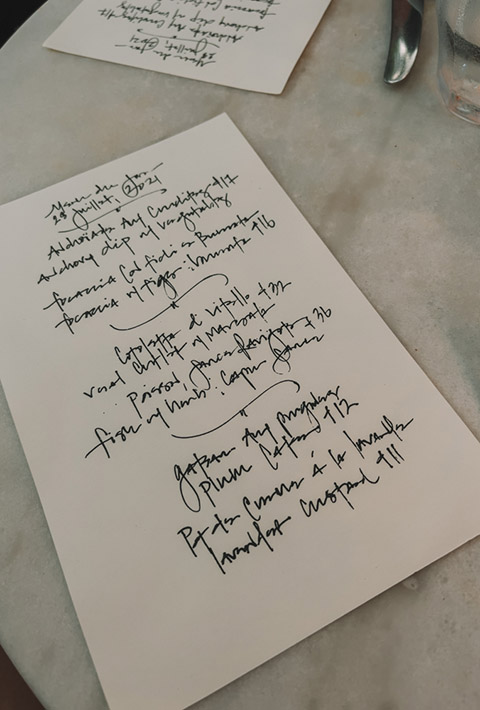 Menu du Jour
28 juillet, 2021
Anchoïade Aux Crudités +17
Anchovy dip w/ vegetables
focaccia Con fichi e Burrata
focaccia w/ figs & burrata +16
Cotoletta di vitello +32
veal cutlet w/
Poisson, sauce +36
fish w/ herb & caper sauce
gateau Aux
Plum Custard +12
Pot de Creme à la lavande
lavender custard +11